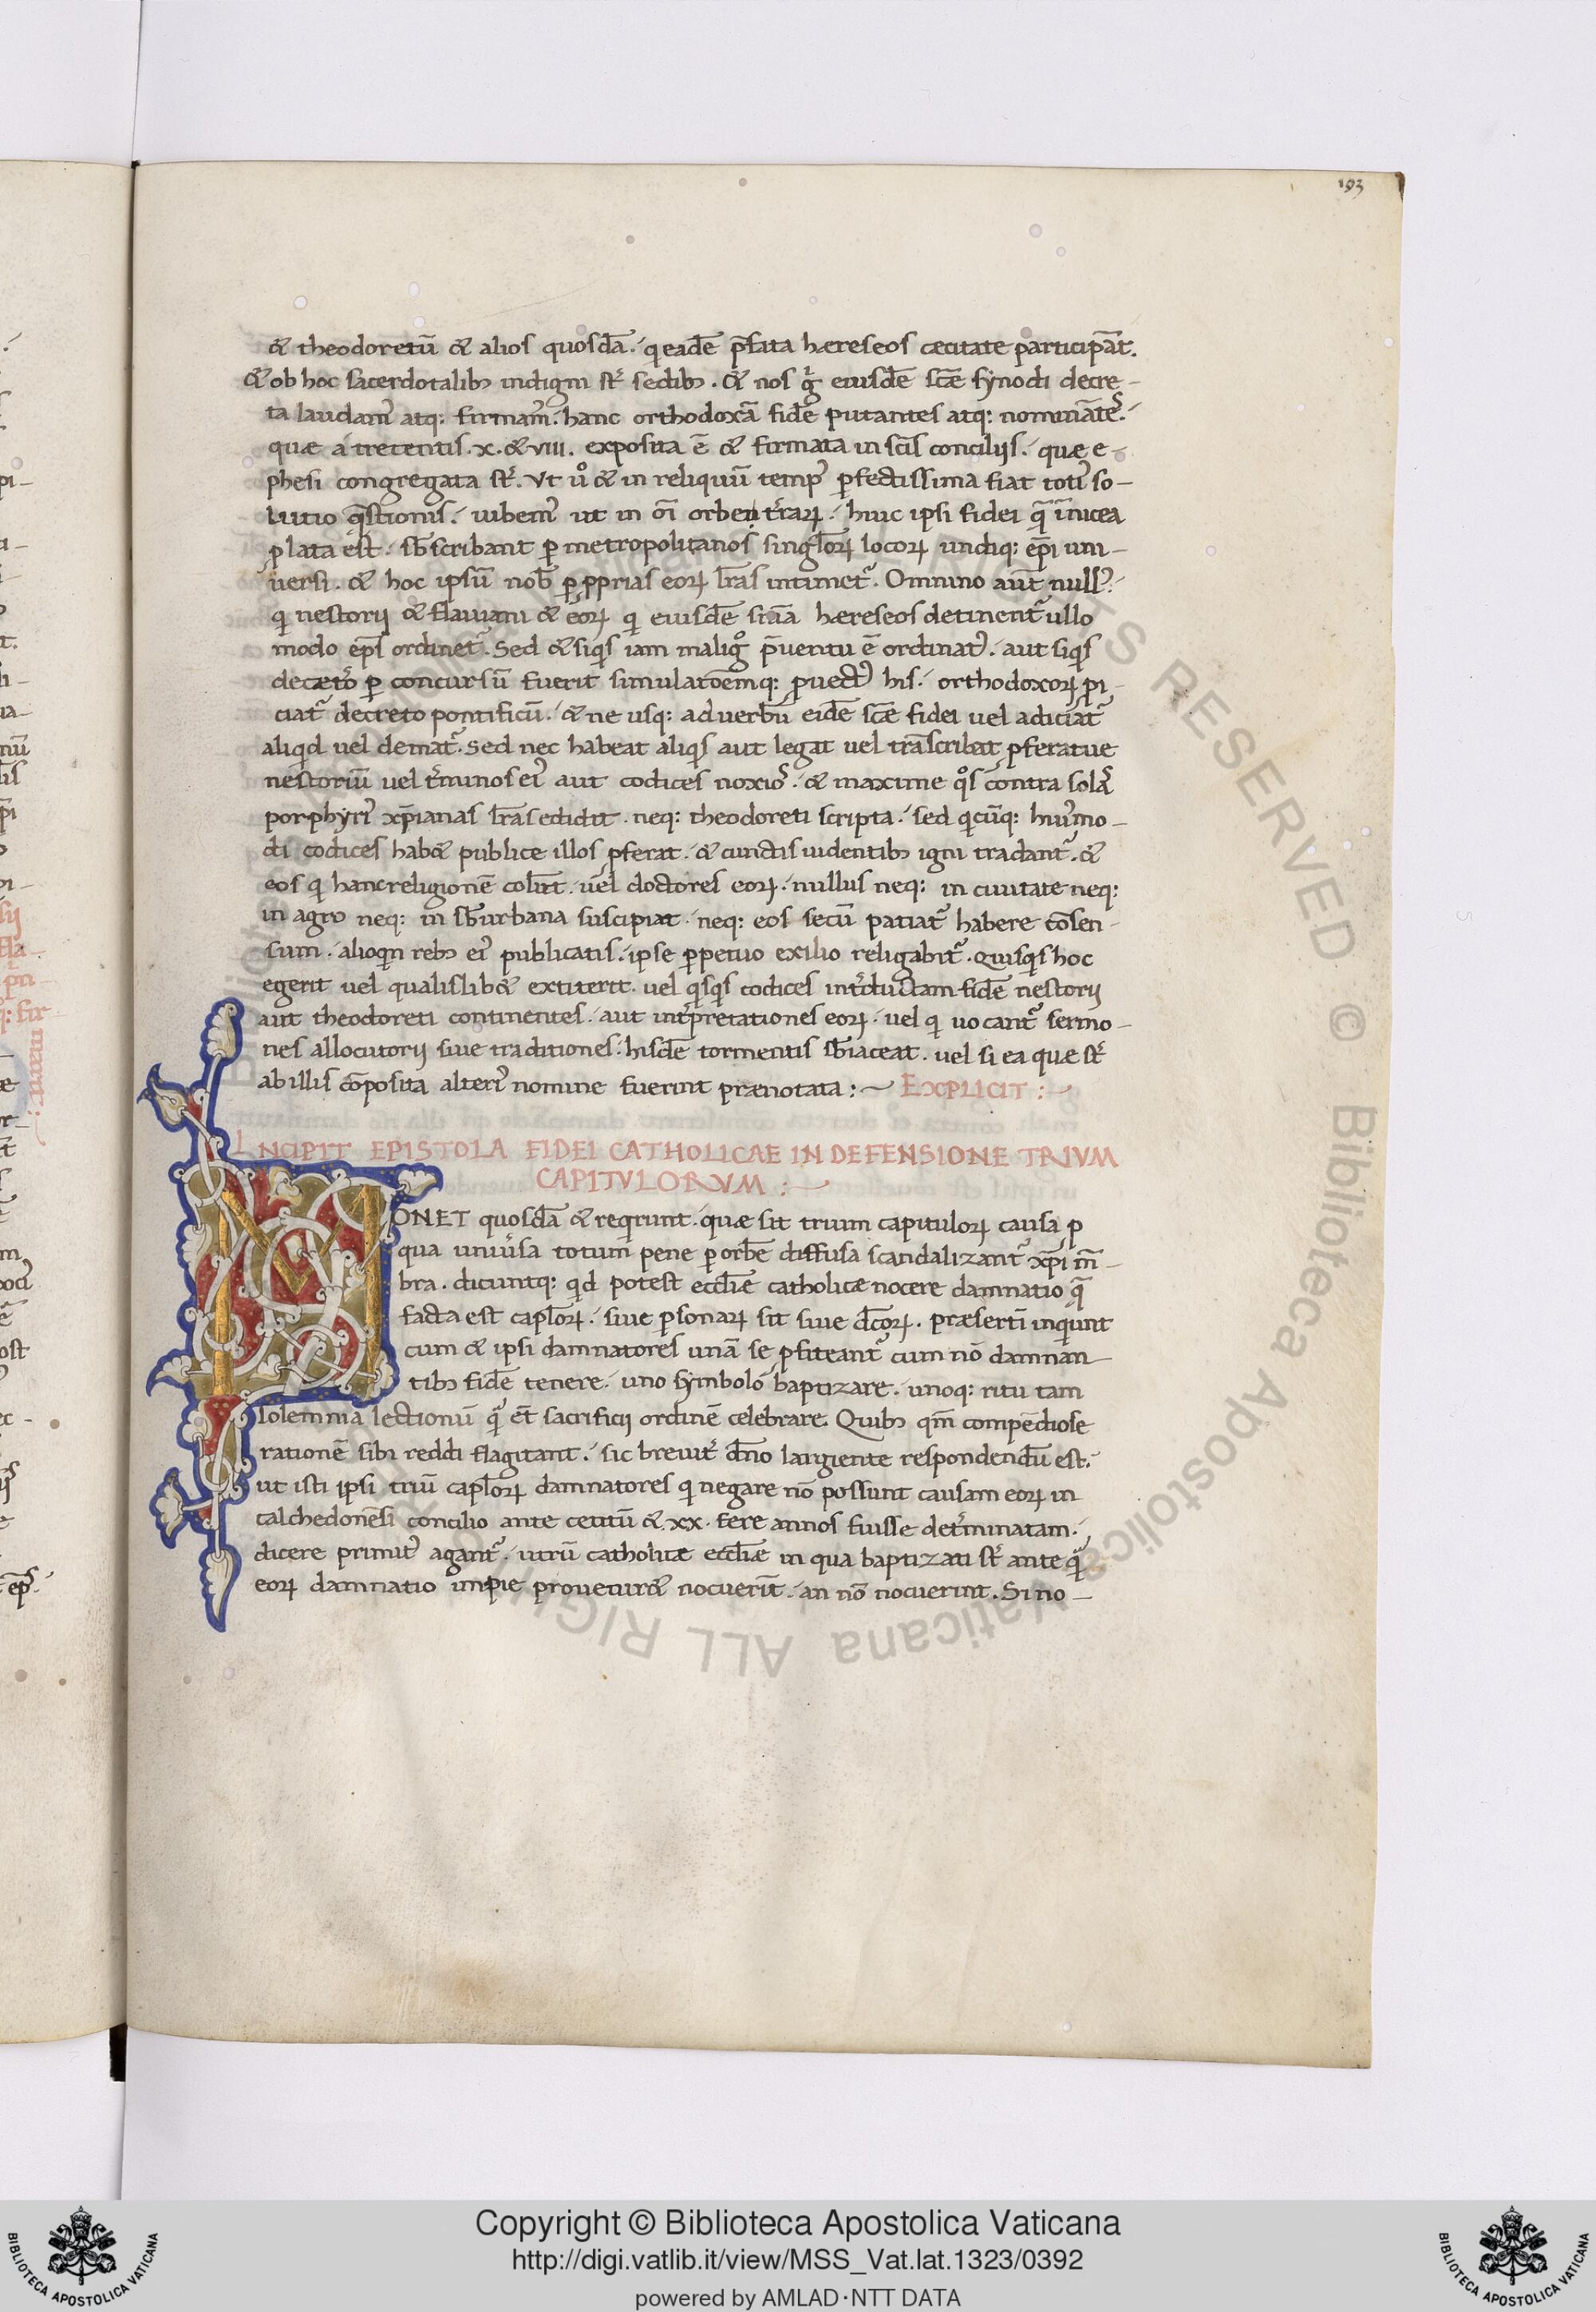 193
& theodoretū & alios quosdā. qi eadē p̄fata hæreseos cæcitate participāt.
& ob hoc sacerdotalib; indigni st̄ sedib;. & nos g̊ eiusdē scǣ synodi decre-
ta laudam᷒ atq: firmam᷒. hanc orthodoxā fidē putantes atq: nominātes.
quæ a trecentis. x. & viii. exposita ē & firmata in sc̄is conciliis. quæ e-
phesi congregata st̄. Ut ů & in reliquū temp᷒ ꝑfectissima fiat toti᷒ so-
lutio q̄stionis. iubem᷒ ut in om̄i orbe t̄rarꝝ. huic ipsi fidei q̄ ī nicea
ꝓlata est. sb̄scribant ꝑ metropolitanos singl̄orꝝ locorꝝ undiq: ep̄i uni-
uersi. & hoc ipsū nob̄ ꝑ ꝓprias eorꝝ lr̄as intimet᷑. Omnino aūt null᷒.
qi nestorii & flauiani & eorꝝ qi eiusdē sunā hæreseos detinent᷑ ullo
modo ep̄s ordinet᷑. Sed & siqis iam malig̊ p̄uentu ē ordinat᷒. aut siqis
decæt̄o ꝑ concursū fuerit simulatōemq: ꝓuect᷒ his. orthodoxorꝝ ꝓi-
ciat᷑ decreto pontificū. & ne usq: ad uerbū eidē scǣ fidei uel adiciat᷑
aliqid uel demat᷑. Sed nec habeat aliqis aut legat uel trāscribat ꝓferatue
nestoriū uel t̄minos ei᷒ aut codices noxios. & maxime qos contra sola
porphyri᷒ xp̄ianas lr̄as edidit. neq: theodoreti scripta. sed qicūq: hui᷒mo-
di codices hab& publice illos ꝓferat. & cunctis uidentib; igni tradant᷑. &
eos qi hanc religionē colūt. uel doctores eorꝝ. nullus neq: in ciuitate neq:
in agro neq: in sb̄urbana suscipiat. neq: eos secū patiat᷑ habere cōsen-
sum. alioqin reb; ei᷒ publicatis. ipse ꝑpetuo exilio religabit᷑. Quisqis hoc
egerit uel qualislib& extiterit. uel qisqis codices int̄dictam fidē nestorii
aut theodoreti continentes. aut int̄pretationes eorꝝ. uel qi uocant᷑ sermo-
nes allocutorii siue traditiones. hisdē tormentis sb̄iaceat. uel si ea quæ st̄
ab illis cōposita alteri᷒ nomine fuerint prænotata:~ EXPLICIT:~
INCIPIT EPISTOLA FIDEI CATHOLICAE IN DEFENSIONE TRIVM
CAPITVLORVM:~
MONET quosdā & reqirunt. quæ sit trium capitulorꝝ causa ꝓ
qua uniu̅sa totum pene ꝑ orbē diffusa scandalizant᷑ xp̄i mē-
bra. dicuntq: qid potest eccl̄iæ catholicæ nocere damnatio q̄
facta est capl̄orꝝ. siue ꝑsonarꝝ sit siue dc̄orꝝ. præsertī inqiunt
cum & ipsi damnatores unā se ꝓfiteant᷑ cum nō damnan-
tib; fidē tenere. uno symbolo baptizare. unoq: ritu tam
solemnia lectionū qᷓ ēt sacrificii ordinē celebrare. Quib; qm̄ compēdiose
rationē sibi reddi flagitant. sic breuit̄ dn̄o largiente respondendū est.
ut isti ipsi triū capl̄orꝝ damnatores qi negare nō possunt causam eorꝝ in
calchedonēsi concilio ante centū & xx. fere annos fuisse det̄minatam.
dicere primit᷒ agant᷑. utrū catholicæ eccl̄iæ in qua baptizati st̄ ante qᷓ
eorꝝ damnatio impie proueniret nocuerīt. an nō nocuerint. Si no-
Copyright © Biblioteca Apostolica Vaticana
http://digi.vatlib.it/view/MSS_Vat.lat.1323/0392
powered by AMLAD·NTT DATA